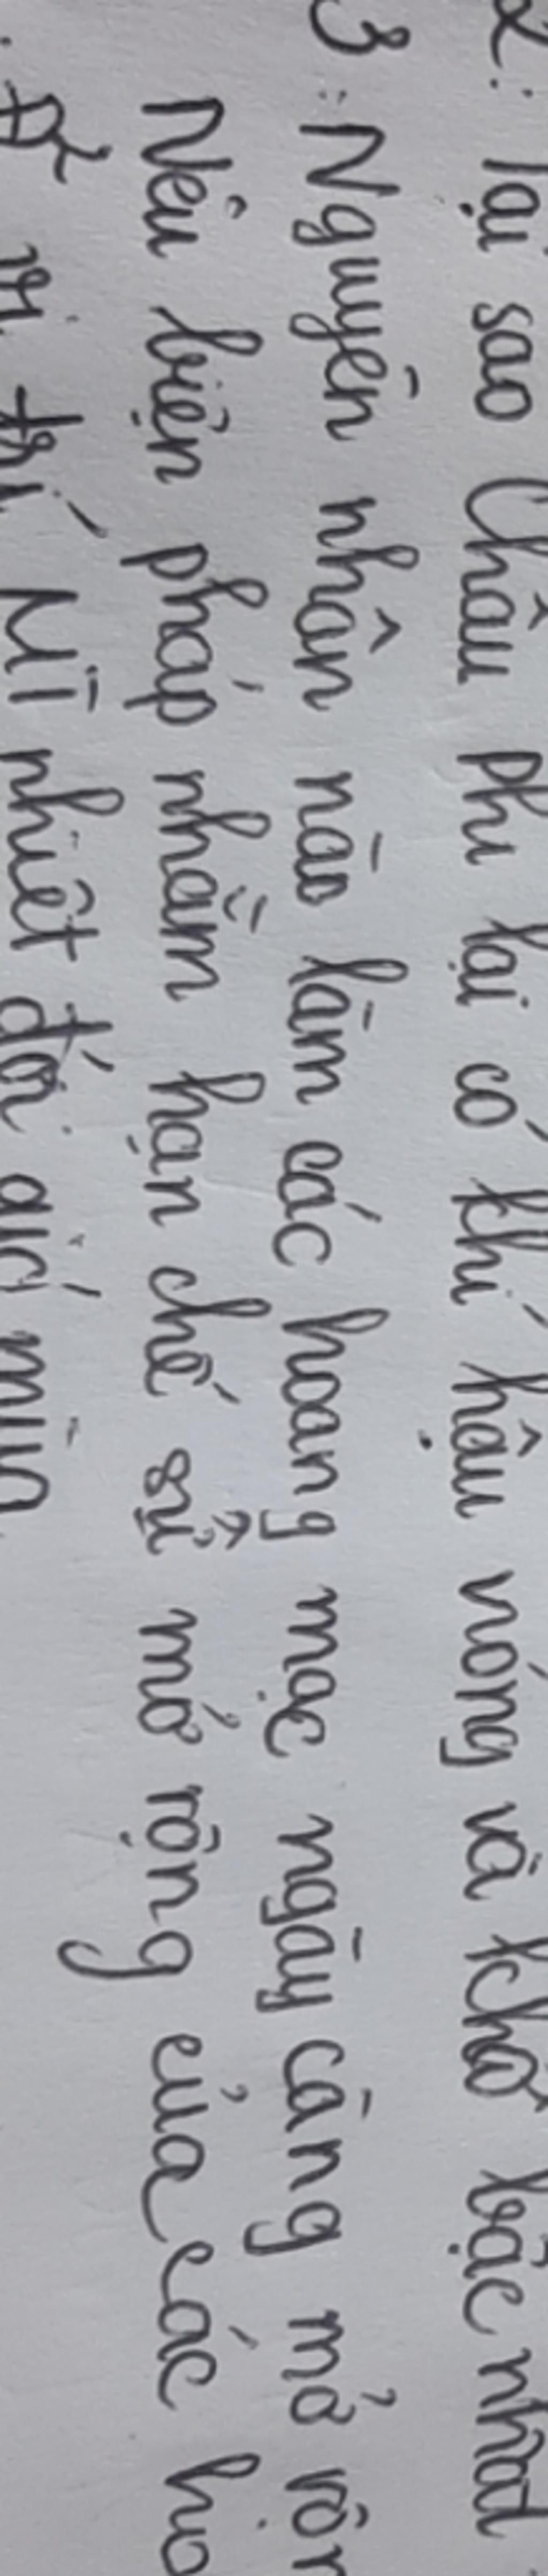 2: Tại sao Châu phi lại có khí hậu nóng và khô bậc nhất
3: Nguyên nhân nào làm các hoang mạc ngày càng mở rộn
Nêu biện pháp nhằm hạn chế sự mở rộng của các ho
vị trí Mĩ nhiệt đới gió mùa